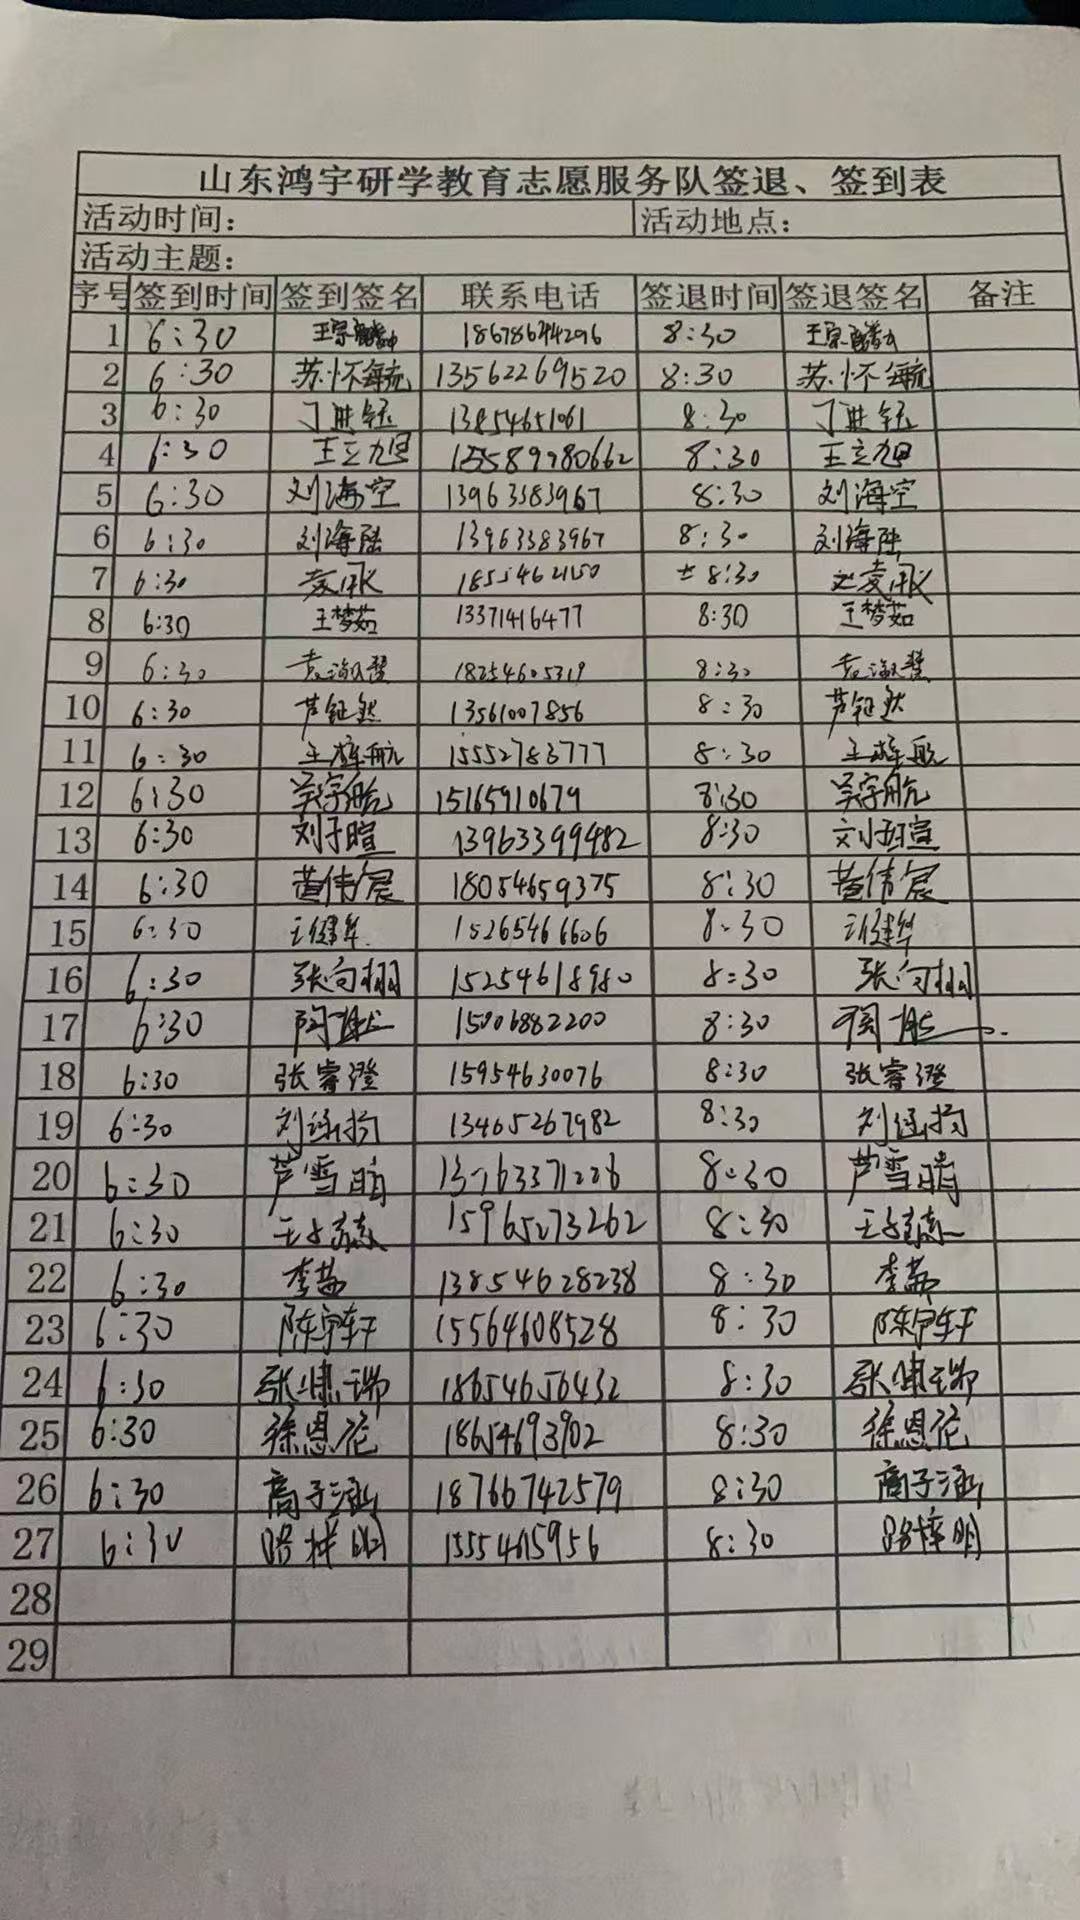 山东鸿宇研学教育志愿服务队签退、签到表
活动时间： 活动地点：
活动主题：
序号 签到时间 签到签名 联系电话 签退时间 签退签名 备注
1 6:30 8:30
2 6:30 苏怀毓 13562269520 8:30 苏怀毓
3 6:30 13854651061 8:30
4 6:30 王立旭 15589980662 8:30 王立旭
5 6:30 刘海空 13963383967 8:30 刘海空
6 6:30 刘海陆 13963383967 8:30 刘海陆
7 6:30 8:30
8 6:30 王梦茹 13371416477 8:30 王梦茹
9 6:30 18254605319 8:30
10 6:30 芦钲然 13561007856 8:30 芦钲然
11 6:30 15552783777 8:30
12 6:30 吴宇航 15165910679 8:30 吴宇航
13 6:30 刘子暄 13963399482 8:30
14 6:30 董伟宸 18054659375 8:30 董伟宸
15 6:30 王健华 15265466606 8:30 王健华
16 6:30 张向栩 15254618980 8:30 张向栩
17 6:30 15006882200 8:30
18 6:30 张睿澄 15954630076 8:30 张睿澄
19 6:30 13465267982 8:30
20 6:30 芦雪晴 8:30 芦雪晴
21 6:30 15965273262 8:30
22 6:30 李茜 13854628238 8:30 李茜
23 6:30 陈宇轩 15564608528 8:30 陈宇轩
24 6:30 张健瑞 18654656432 8:30 张健瑞
25 6:30 徐恩花 18654693902 8:30 徐恩花
26 6:30 商子涵 18766742579 8:30 商子涵
27 6:30 8:30 路梓明
28
29